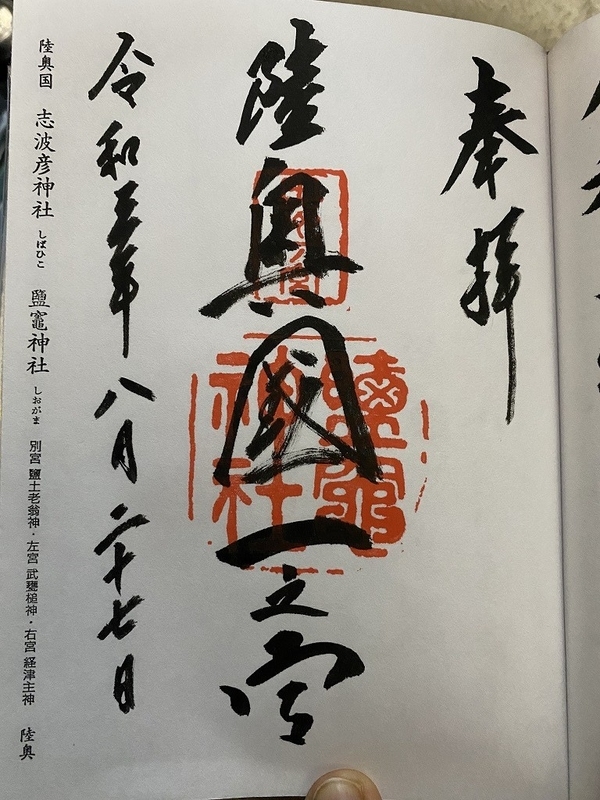 奉拝
陸奥國一之宮
鹽竈神社
令和三年八月二十七日
陸奥国 志波彦神社 しばひこ 鹽竈神社 しおがま 別宮 鹽土老翁神・左宮 武甕槌神・右宮 経津主神 陸奥